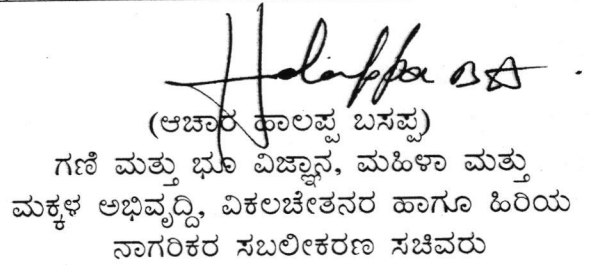 (ಆಚಾರ ಹಾಲಪ್ಪ ಬಸಪ್ಪ)
ಗಣಿ ಮತ್ತು ಭೂ ವಿಜ್ಞಾನ, ಮಹಿಳಾ ಮತ್ತು
ಮಕ್ಕಳ ಅಭಿವೃದ್ಧಿ, ವಿಕಲಚೇತನರ ಹಾಗೂ ಹಿರಿಯ
ನಾಗರಿಕರ ಸಬಲೀಕರಣ ಸಚಿವರು